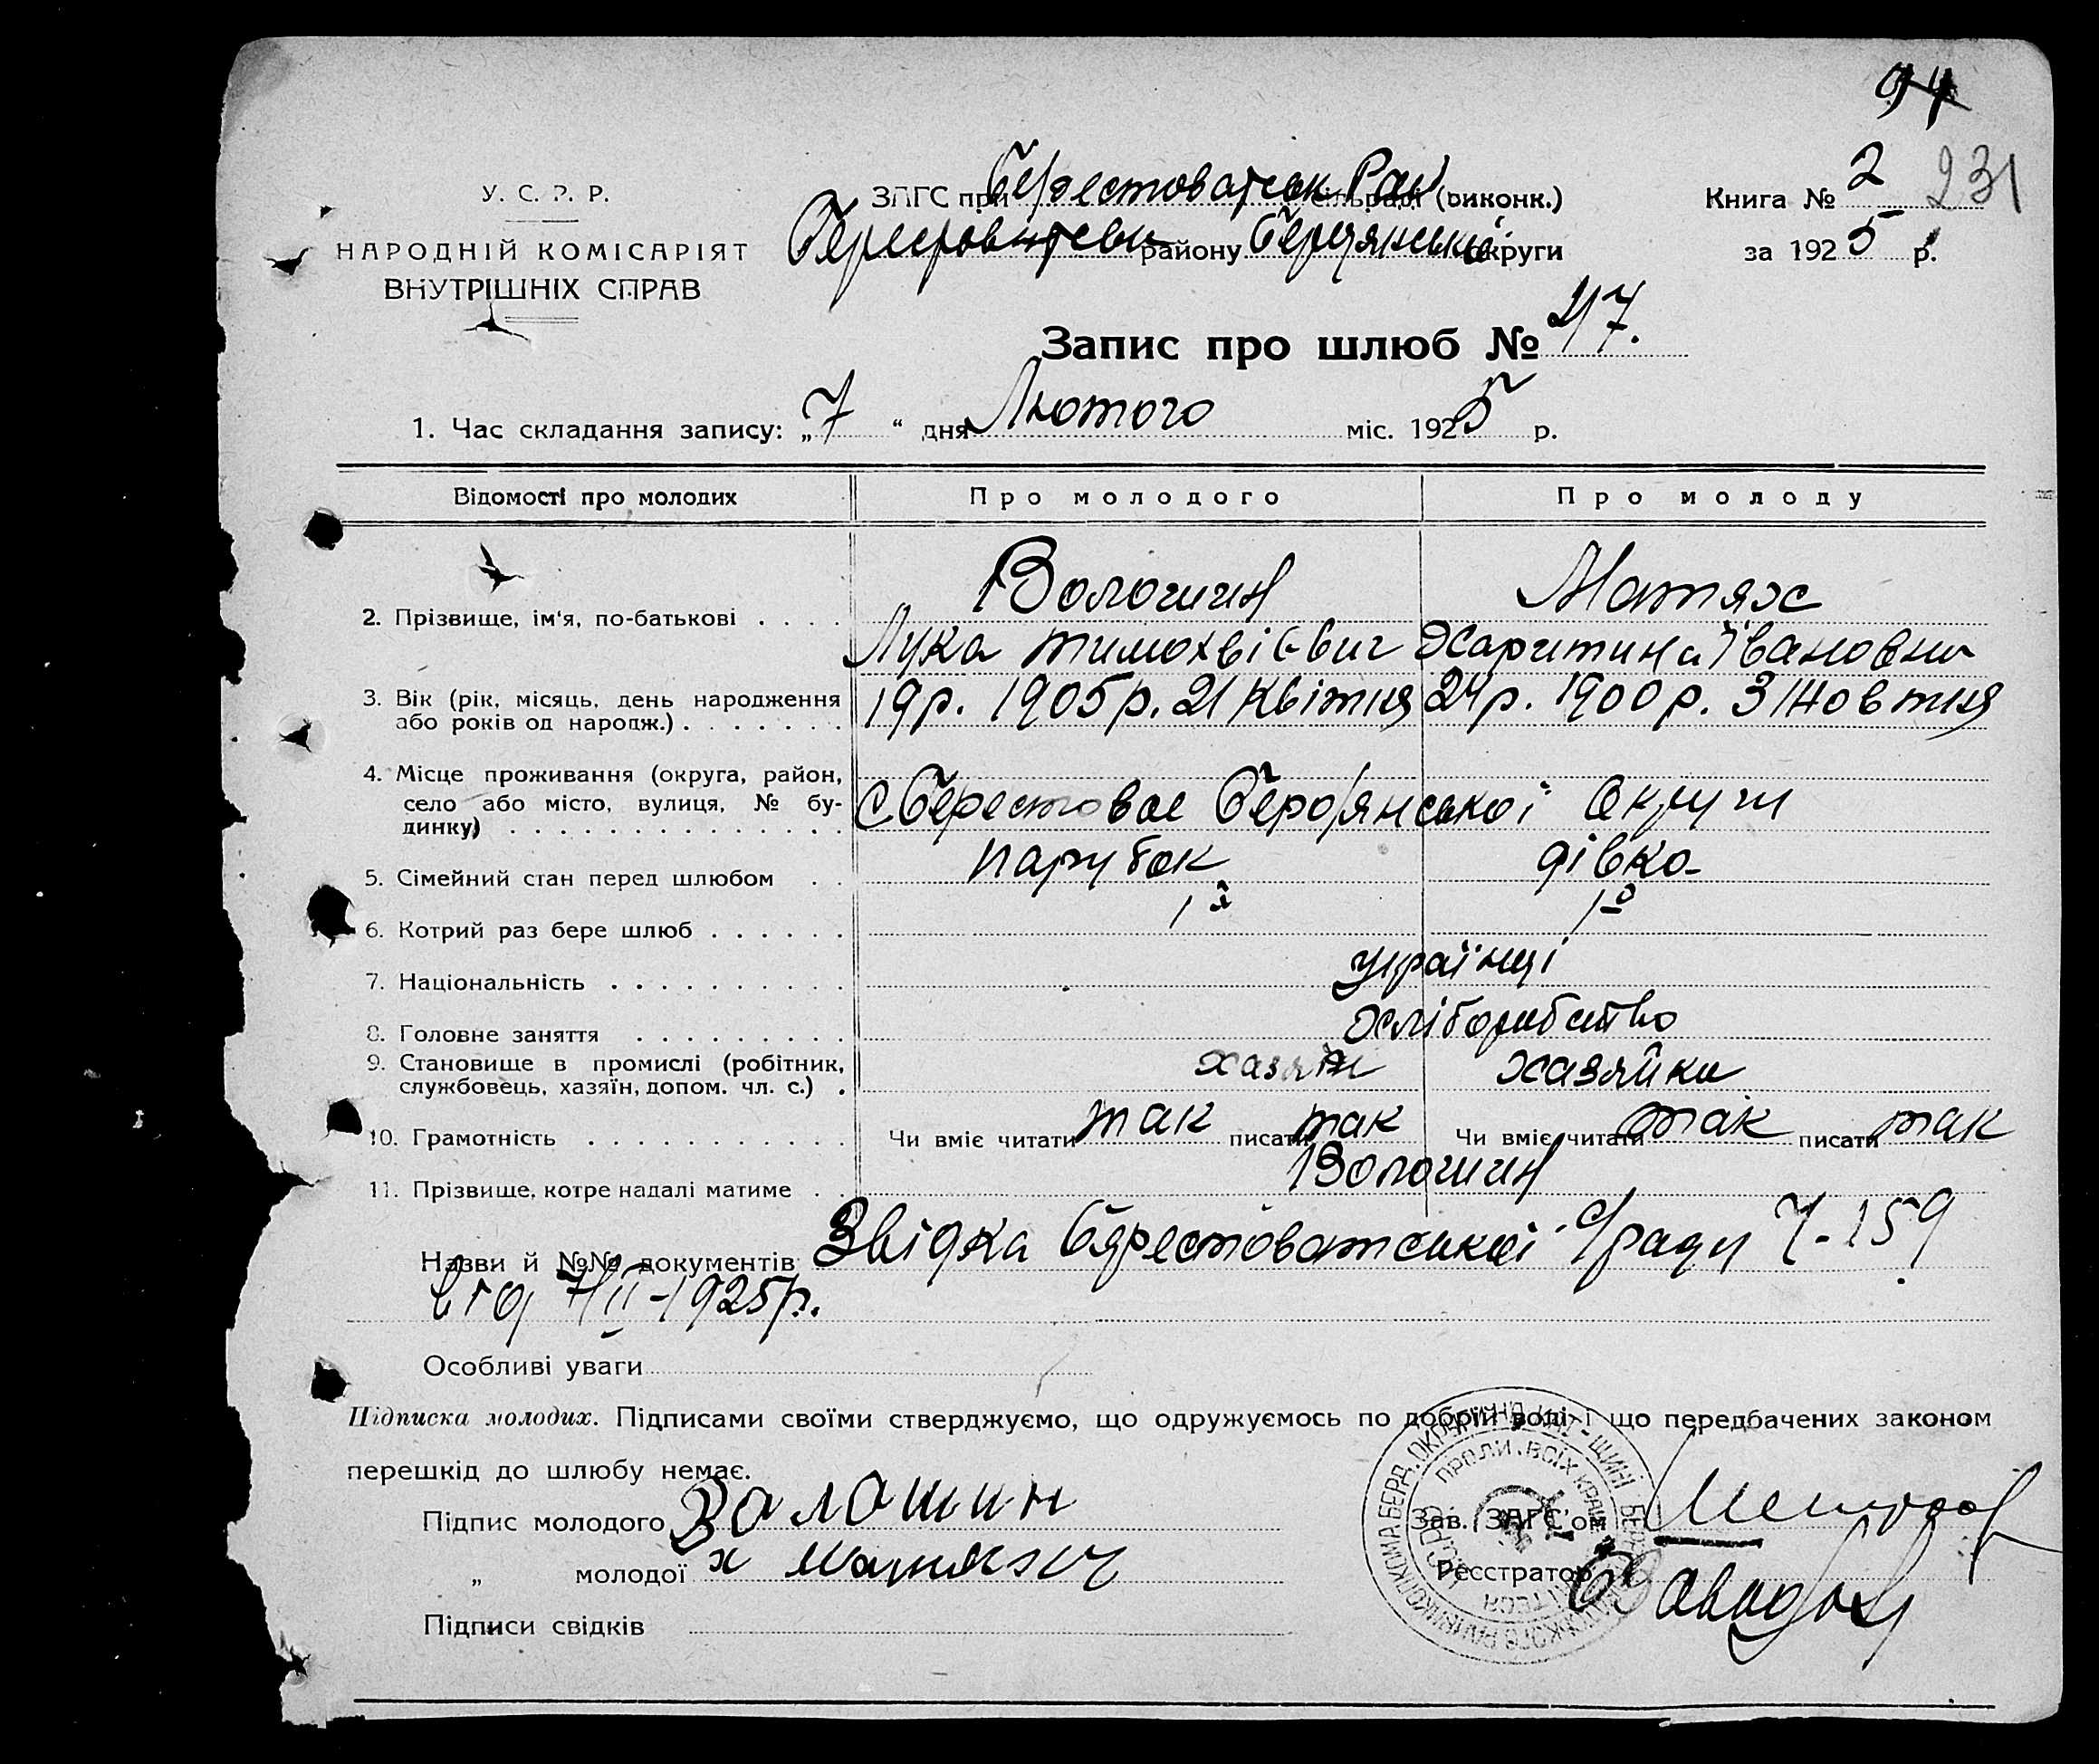 94
У. С. Р. Р.
ЗАГС при Берестоватськ Рай (виконк.)
Книга № 2 231
НАРОДНІЙ КОМІСАРІЯТ
району округи
за 1925 р.
ВНУТРІШНІХ СПРАВ
Запис про шлюб № 47.
1. Час складання запису: „7“ дня Лютого міс. 1925 р.
Відомості про молодих Про молодого Про молоду
Волошин Матяж
2. Прізвище, ім'я, по-батькові
Лука Тимохвієвич Харитина Івановна
3. Вік (рік, місяць, день народження або років од народж.) 19 р. 1905 р. 21 Квітня 24 р. 1900 р. 3 Жовтня
4. Місце проживання (округа, район,
село або місто, вулиця, № бу-
динку) с Берестовое Бердянської Округи
5. Сімейний стан перед шлюбом парубок дівка
6. Котрий раз бере шлюб 1й 1о
7. Національність українці
8. Головне заняття хліборобство
9. Становище в промислі (робітник,
службовець, хазяїн, допом. чл. с.) хазяін хазяйка
10. Грамотність Чи вміє читати так писати так Чи вміє читати так писати так
11. Прізвище, котре надалі матиме Волошин
Назви й №№ документів Звідка Бярестоватської с/ради Ч-159
від 7/II-1925р.
Особливі уваги
Підписка молодих. Підписами своїми стверджуємо, що одружуємось по добрій волі і що передбачених законом
перешкід до шлюбу немає.
Підпис молодого Валашин
Зав. ЗАГС'ом
„ молодої
Реєстратор
Підписи свідків